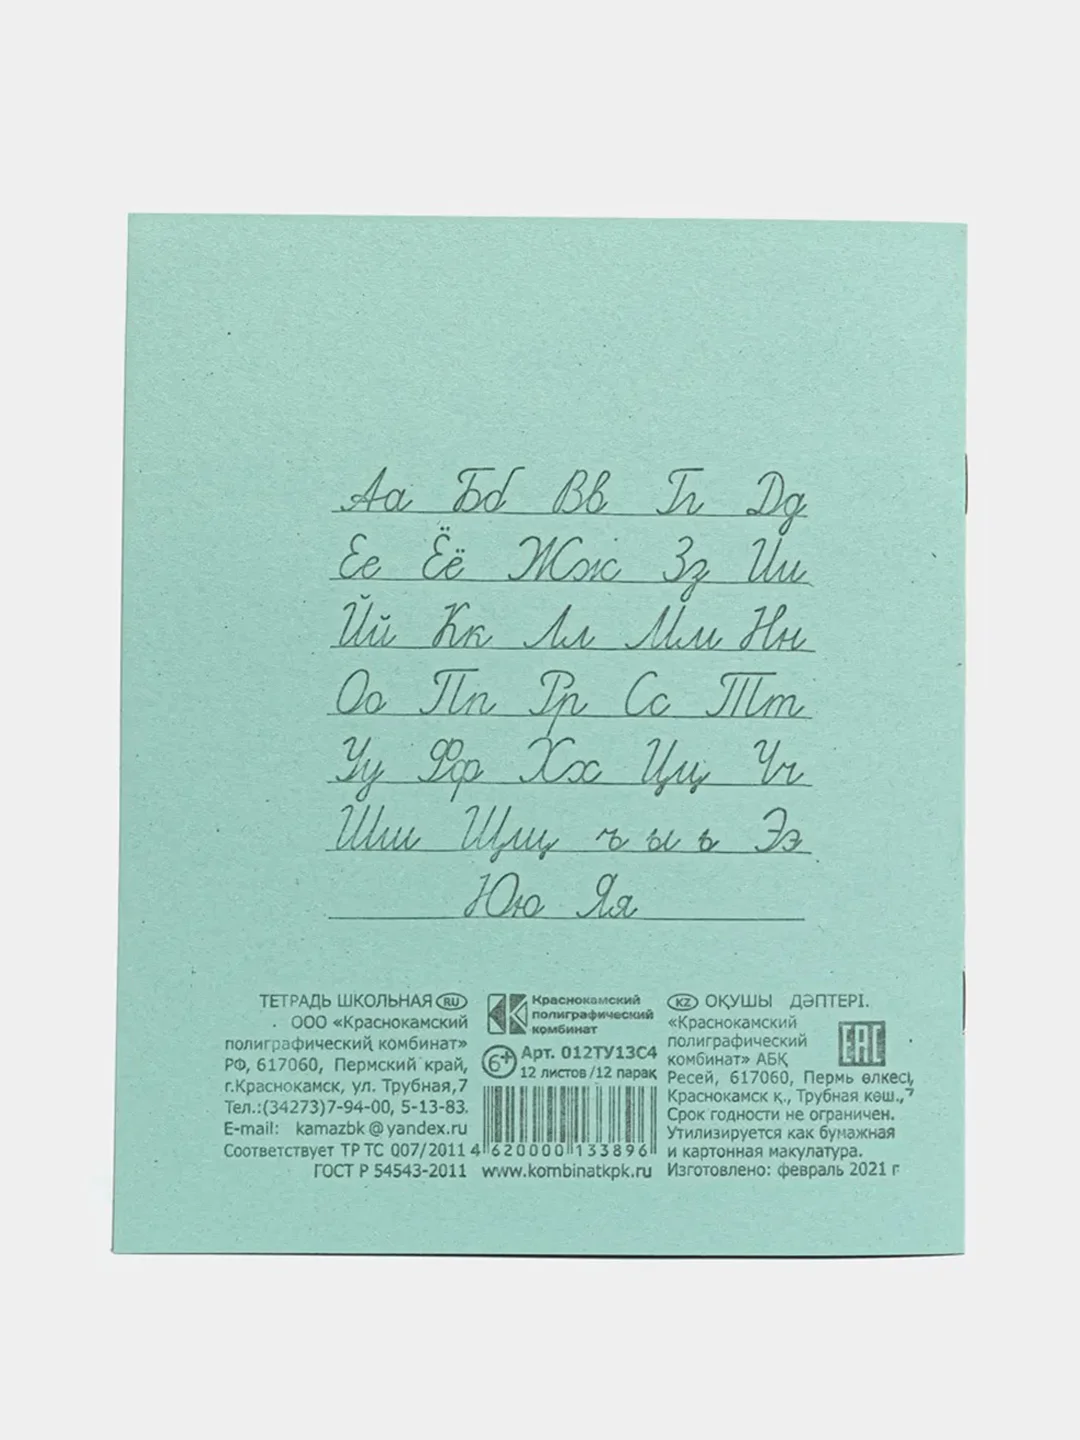 Аа Бб Вв Гг Дд
Ее Ёё Жж Зз Ии
Йй Кк Лл Мм Нн
Оо Пп Рр Сс Тт
Уу Фф Хх Цц Чч
Шш Щщ ъ ы ь Ээ
Юю Яя
ТЕТРАДЬ ШКОЛЬНАЯ RU
ООО «Краснокамский
полиграфический комбинат»
РФ, 617060, Пермский край,
г.Краснокамск, ул. Трубная,7
Тел.:(34273)7-94-00, 5-13-83.
E-mail: kamazbk@yandex.ru
Соответствует ТР ТС 007/2011
ГОСТ Р 54543-2011
Краснокамский
полиграфический
комбинат
6+ Арт. 012ТУ13С4
12 листов/12 парақ
4 620000 133896
www.kombinatkpk.ru
KZ ОҚУШЫ ДӘПТЕРІ.
«Краснокамский
полиграфический
комбинат» АБҚ
EAC
Ресей, 617060, Пермь өлкесі,
Краснокамск қ., Трубная көш.,7
Срок годности не ограничен.
Утилизируется как бумажная
и картонная макулатура.
Изготовлено: февраль 2021 г